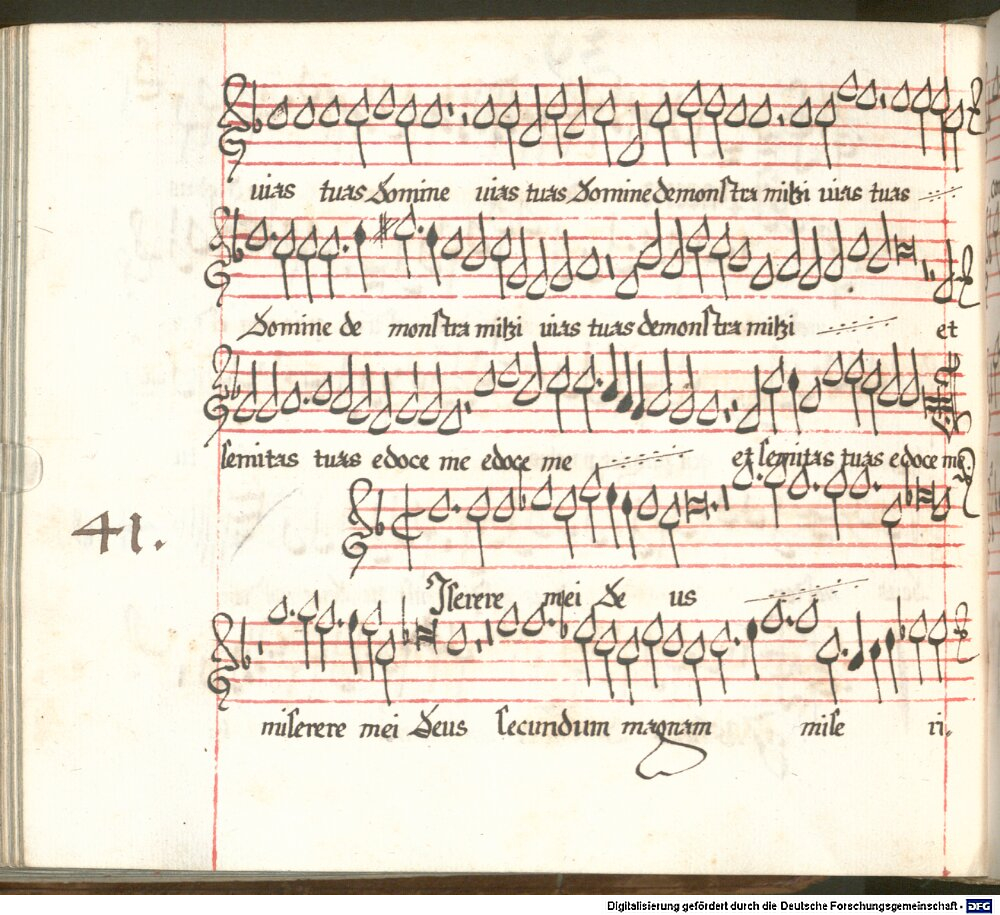 vias tuas Domine vias tuas Domine demonstra mihi vias tuas
Domine de monstra mihi vias tuas demonstra mihi et
semitas tuas edoce me edoce me et semitas tuas edoce me
41.
Iserere mei De us
miserere mei Deus secundum magnam mise ri.
Digitalisierung gefördert durch die Deutsche Forschungsgemeinschaft - DFG